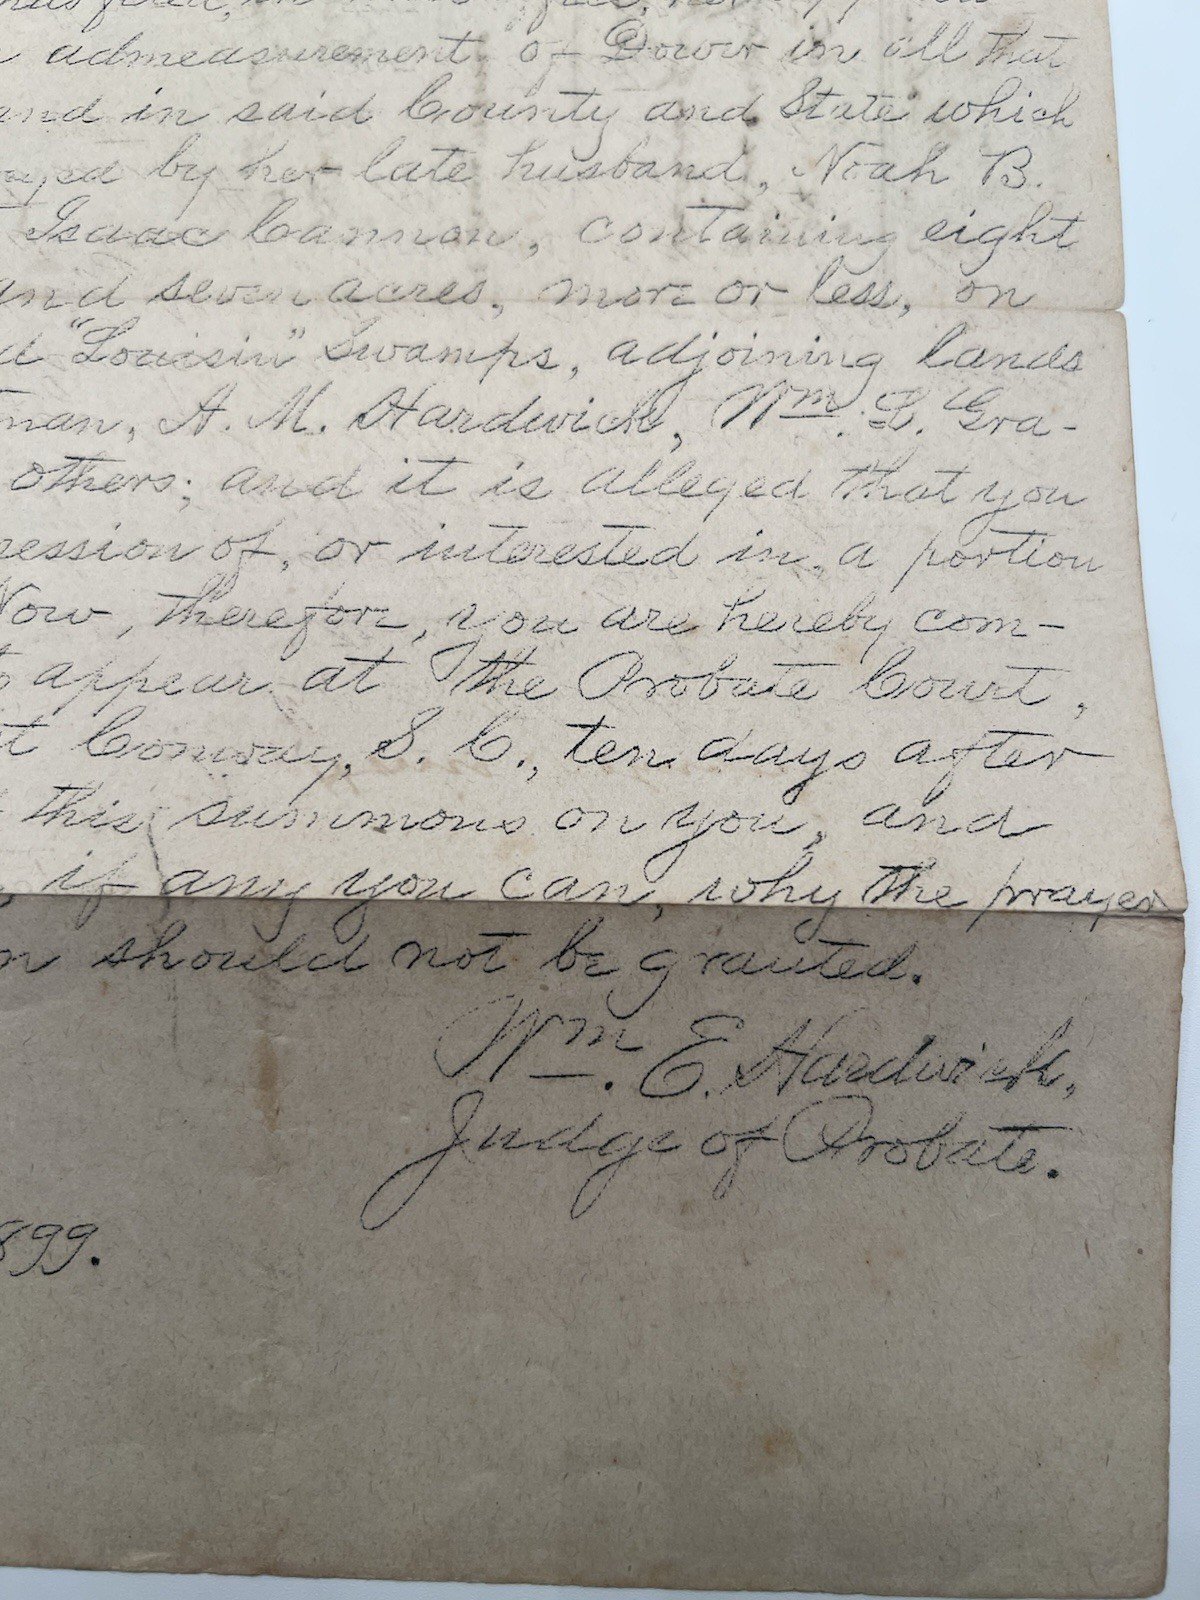 admeasurement of Dower in all that
and in said County and State which
by her late husband, Noah B.
Isaac Cannon, containing eight
and seven acres, more or less, on
"Louisin" Swamps, adjoining lands
man, A. M. Hardwick, Wm. L. Gra-
others; and it is alleged that you
session of, or interested in, a portion
Now, therefore, you are hereby com-
appear at the Probate Court,
t Conway, S. C., ten days after
this summons on you, and
, if any you can, why the prayer
n should not be granted.
Wm. E. Hardwick,
Judge of Probate.
899.